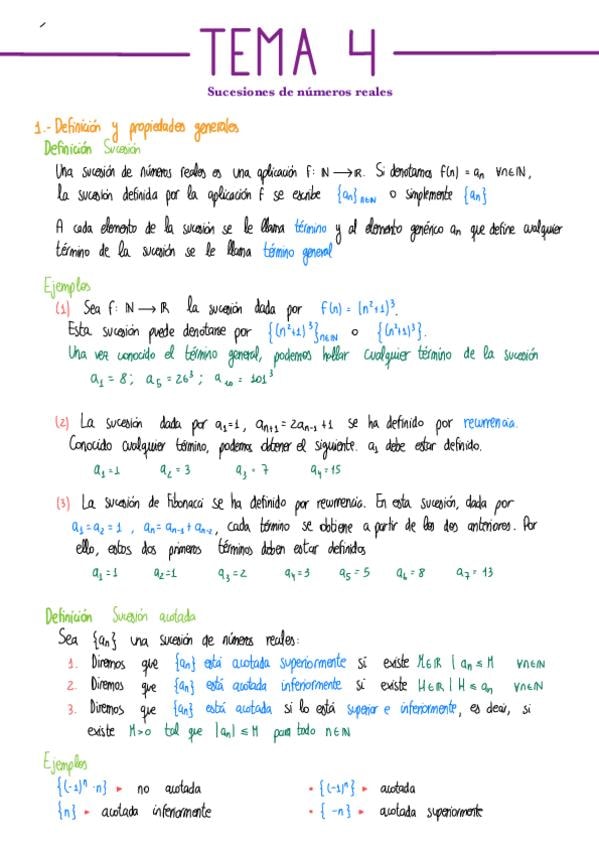 TEMA 4
Sucesiones de números reales
1.- Definición y propiedades generales
Definición Sucesión
Una sucesión de números reales es una aplicación f: ℕ → ℝ. Si denotamos f(n) = aₙ ∀n∈ℕ,
la sucesión definida por la aplicación f se escribe {aₙ}ₙ∈ℕ o simplemente {aₙ}
A cada elemento de la sucesión se le llama término y al elemento genérico aₙ que define cualquier
término de la sucesión se le llama término general
Ejemplos
(1) Sea f: ℕ → ℝ la sucesión dada por f(n) = (n²+1)³.
Esta sucesión puede denotarse por {(n²+1)³}ₙ∈ℕ o {(n²+1)³}.
Una vez conocido el término general, podemos hallar cualquier término de la sucesión
a₁ = 8; a₅ = 26³; a₁₀ = 101³
(2) La sucesión dada por a₁=1, aₙ₊₁ = 2aₙ₋₁ +1 se ha definido por recurrencia.
Conocido cualquier término, podemos obtener el siguiente. a₁ debe estar definido.
a₁ = 1 a₂ = 3 a₃ = 7 a₄ = 15
(3) La sucesión de Fibonacci se ha definido por recurrencia. En esta sucesión, dada por
a₁ = a₂ = 1, aₙ = aₙ₋₁ + aₙ₋₂, cada término se obtiene a partir de los dos anteriores. Por
ello, estos dos primeros términos deben estar definidos
a₁ = 1 a₂ = 1 a₃ = 2 a₄ = 3 a₅ = 5 a₆ = 8 a₇ = 13
Definición Sucesión acotada
Sea {aₙ} una sucesión de números reales:
1. Diremos que {aₙ} está acotada superiormente si existe M∈ℝ | aₙ ≤ M ∀n∈ℕ
2. Diremos que {aₙ} está acotada inferiormente si existe H∈ℝ | H ≤ aₙ ∀n∈ℕ
3. Diremos que {aₙ} está acotada si lo está superior e inferiormente, es decir, si
existe M>0 tal que |aₙ| ≤ M para todo n∈ℕ
Ejemplos
{(-1)ⁿ · n} ▸ no acotada • {(-1)ⁿ} ▸ acotada
{n} ▸ acotada inferiormente • {-n} ▸ acotada superiormente